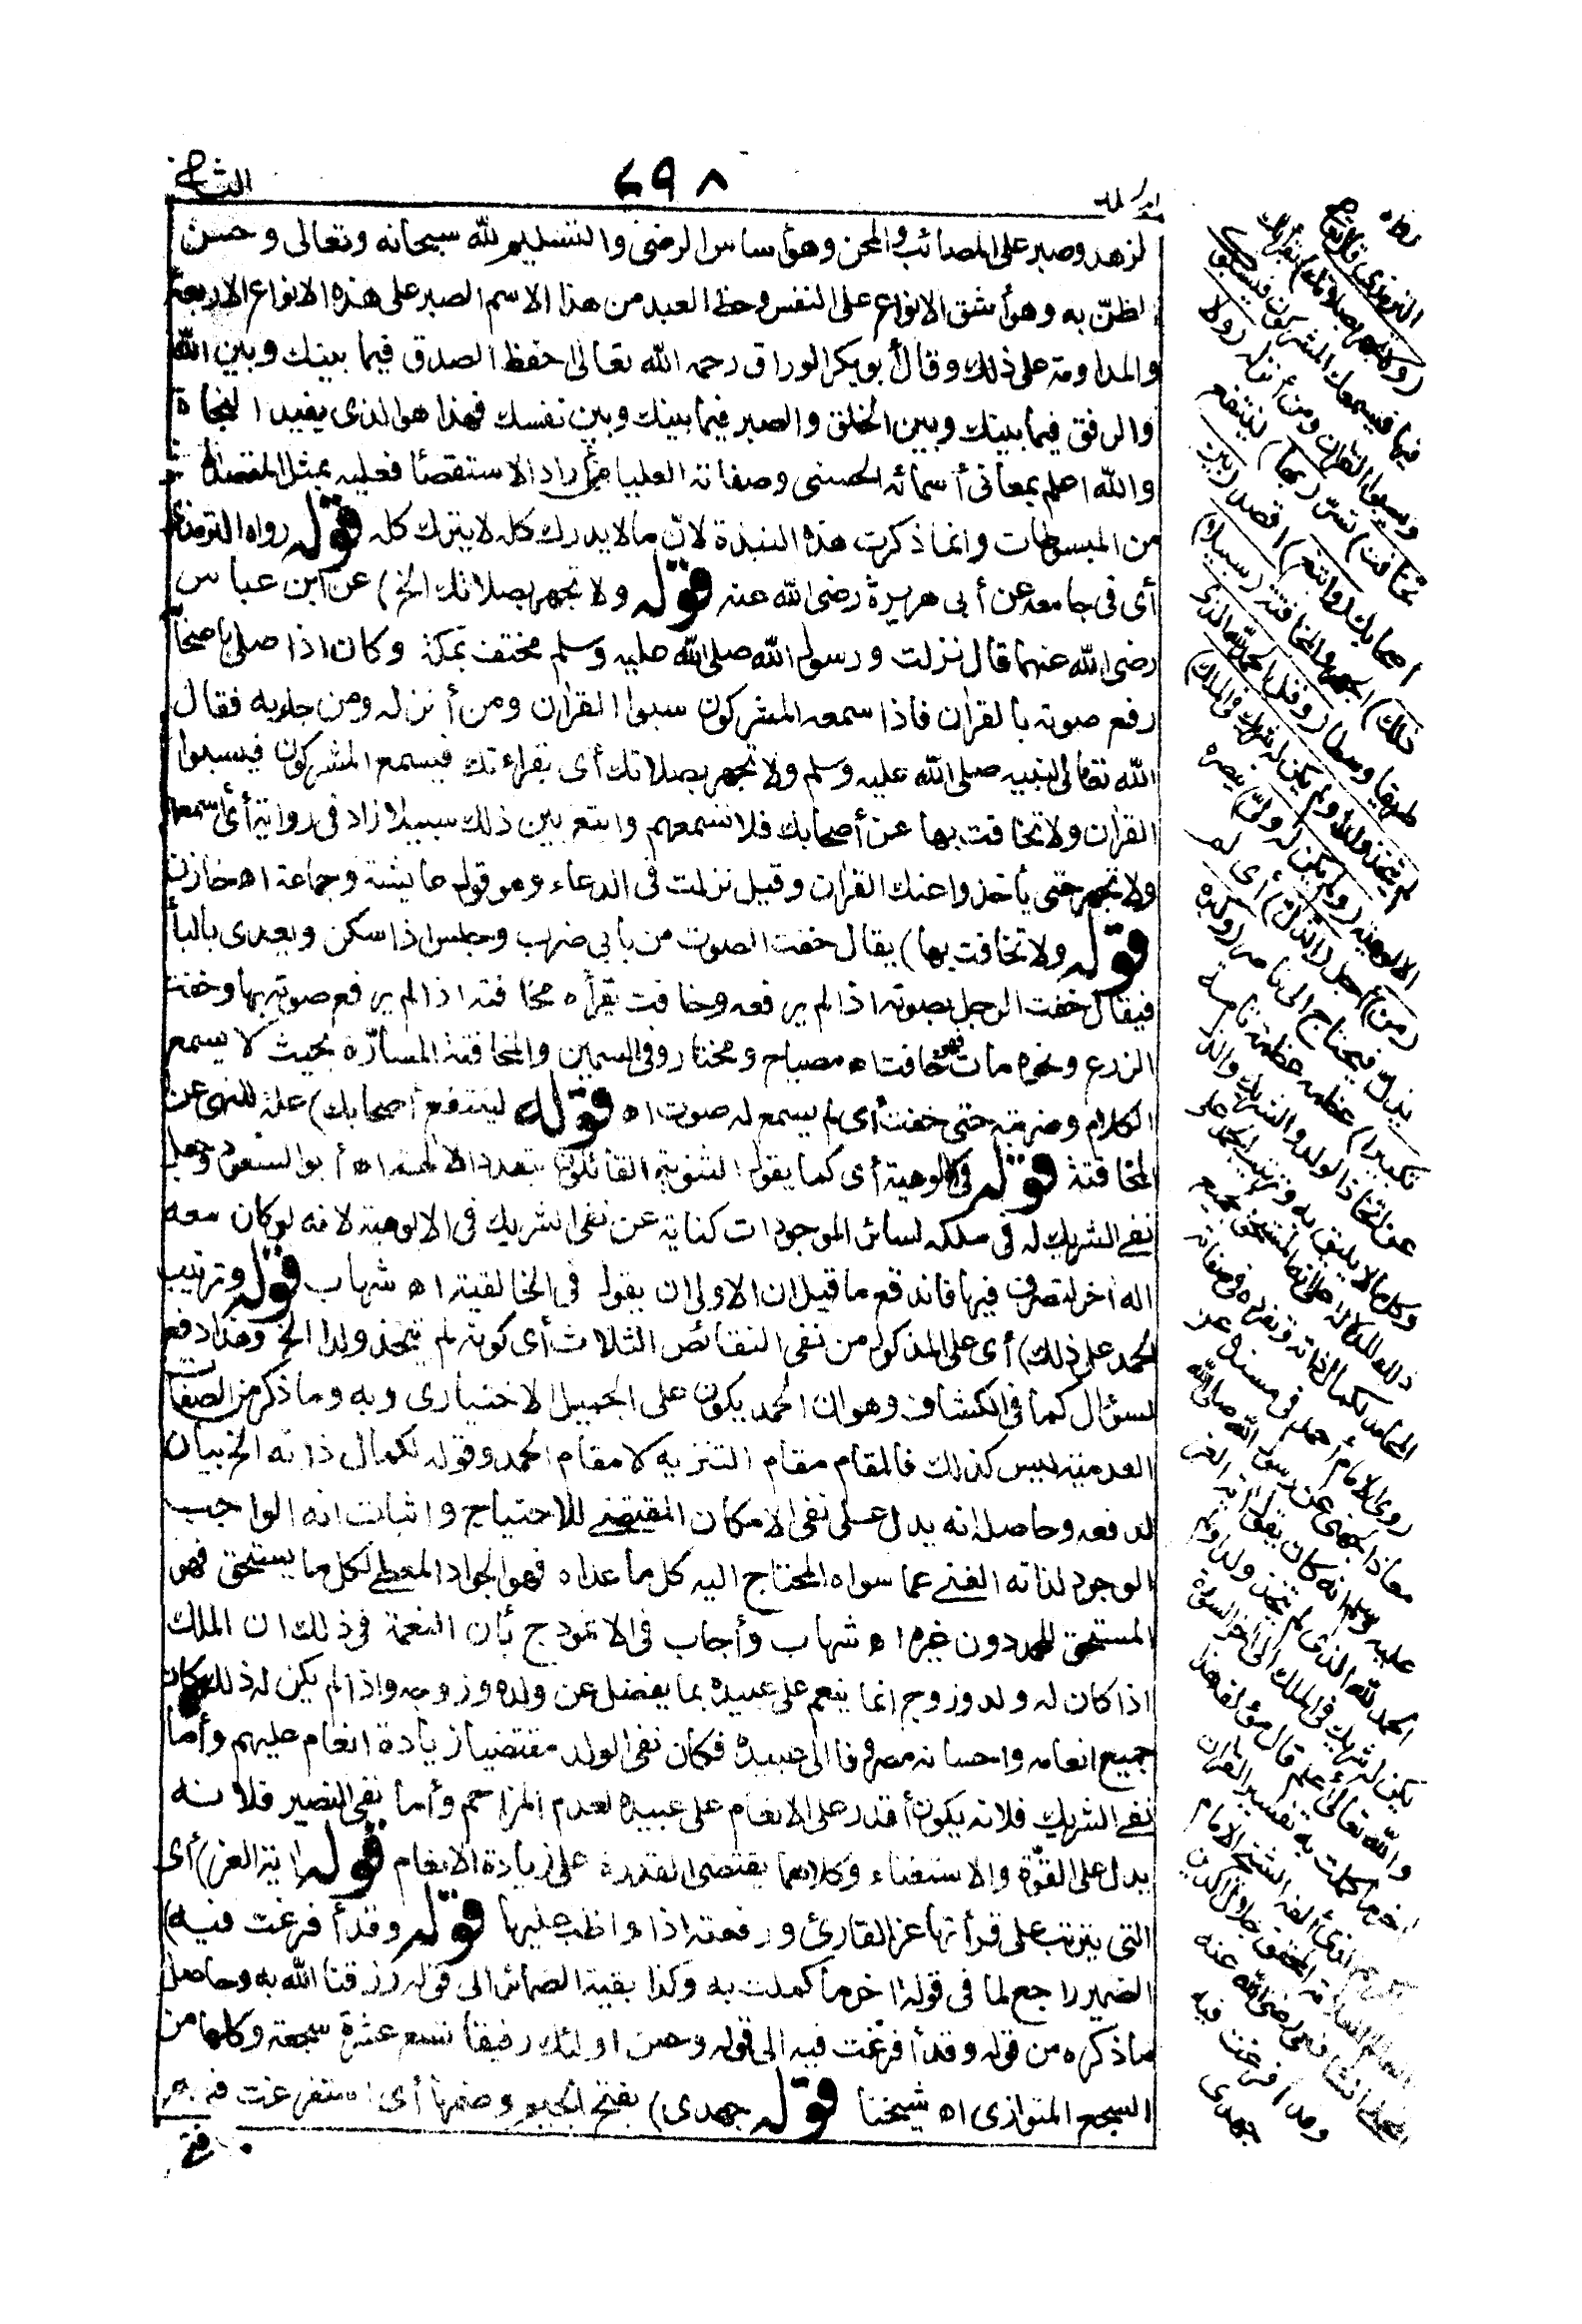 ٦٩٨
لزهد وصبر على المصائب والمحن وهو أساس الرضى والتسليم لله سبحانه وتعالى وحسن
الظنّ به وهو أشق الانواع على النفس وحظ العبد من هذا الاسم الصبر على هذه الانواع الاربعة
والمداومة على ذلك وقال أبو بكر الوراق رحمه الله تعالى احفظ الصدق فيما بينك وبين الله
والرفق فيما بينك وبين الخلق والصبر فيما بينك وبين نفسك فهذا هو الذى يفيد النجاة
والله اعلم بمعانى أسمائه الحسنى وصفاته العليا فمن أراد الاستقصا فعليه بمثل المقصد
من المبسوطات وانما ذكرت هذه النبذة لانّ ما لا يدرك كله لا يترك كله قوله رواه الترمذى
أى فى جامعه عن أبى هريرة رضى الله عنه قوله ولا تجهر بصلاتك الخ) عن ابن عباس
رضى الله عنهما قال نزلت ورسول الله صلى الله عليه وسلم مختف بمكة وكان اذا صلى باصحابه
رفع صوته بالقران فاذا سمعه المشركون سبوا القران ومن أنزله ومن جاء به فقال
الله تعالى لنبيه صلى الله عليه وسلم ولا تجهر بصلاتك أى بقراءتك فيسمع المشركون فيسبوا
القران ولا تخافت بها عن أصحابك فلا تسمعهم وابتغ بين ذلك سبيلا زاد فى رواية أى أسمعهم
ولا تجهر حتى يأخذوا عنك القران وقيل نزلت فى الدعاء وهو قول عايشة وجماعة اه خازن
قوله ولا تخافت بها) يقال خفت الصوت من بابى ضرب وجلس اذا سكن ويعدى بالبأ
فيقال خفت الرجل بصوته اذا لم يرفعه وخافت بقرأه مخافتة اذا لم يرفع صوته بها وخفت
الزرع ونحوه مات فهو خافت اه مصباح ومختار وفى السمين والمخافتة المسارّة بحيث لا يسمع
الكلام وضربته حتى خفت أى لم يسمع له صوت اه قوله لينتفع أصحابك) علة للنهى عن
المخافتة قوله فى الالوهية أى كما يقول الثنوية القائلون بتعدد الالهة اه أبو السعود وجعل
نفى الشريك له فى ملكه لسائر الموجودات كناية عن نفى الشريك فى الالوهية لانه لو كان معه
اله اخر لتصرف فيها فاندفع ما قيل ان الاولى ان يقول فى الخالقية اه شهاب قوله وترتيب
الحمد على ذلك) أى على المذكور من نفى النقائص الثلاث أى كونه لم يتخذ ولدا الخ وهذا دفع
لسؤال كما فى الكشاف وهو ان الحمد يكون على الجميل الاختيارى وبه وما ذكر من الصفات
العدمية ليس كذلك فالمقام مقام التنزيه لا مقام الحمد وقوله لكمال ذاته الخ بيان
لدفعه وحاصله انه يدل على نفى الامكان المقتضى للاحتياج واثبات انه الواجب
الوجود لذاته الغنى عما سواه المحتاج اليه كل ما عداه فهو الجواد المعطى لكل ما يستحق فهو
المستحق للحمد دون غيره اه شهاب وأجاب فى الانموذج بأن النعمة فى ذلك ان الملك
اذا كان له ولد وزوج انما ينعم على عبيده بما يفضل عن ولده وزوجه واذا لم يكن له ذلك كان
جميع انعامه واحسانه مصروفا الى عبيده فكان نفى الولد مقتضيا زيادة انعام عليهم وأما
نفى الشريك فلانه يكون أقدر على الانعام على عبيده لعدم المزاحم وأما نفى النصير فلانه
يدل على القوّة والاستغناء وكلاهما يقتضى القدرة على زيادة الانعام قوله اية العز) أى
التى يترتب على قرأتها عز القارئ ورفعته اذا واظب عليها قوله وقد أفرغت فيه)
الضمير راجع لما فى قوله اخر ما كملت به وكذا بقية الضمائر الى قوله رزقنا الله به وحاصل
ما ذكره من قوله وقد أفرغت فيه الى قوله وحسن اولئك رفيقا تسع عشرة سجعة وكلها من
السجع المتوازى اه شيخنا قوله جهدى) بفتح الجيم وضمها أى استفرغت فيه
الترمذى قال تعالى
(ولا تجهر بصلاتك) بقراءتك
فيها فيسمعك المشركون فيسبوك
ويسبوا القران ومن أنزله (ولا
تخافت) تسرّ (بها) لينتفع
أصحابك (وابتغ) اقصد (بين
ذلك) الجهر والمخافتة (سبيلا)
طريقا وسطا (وقل الحمد لله الذى
لم يتخذ ولدا ولم يكن له شريك فى الملك)
الالوهية (ولم يكن له ولىّ) ينصره
(من) أجل (الذلّ) أى لم
يذلّ فيحتاج الى ناصر (وكبره
تكبيرا) عظمه عظمة تامة
عن اتخاذ الولد والشريك والذل
وكل ما لا يليق به وترتيب الحمد على
ذلك للدلالة على انه المستحق لجميع
المحامد لكمال ذاته وتفرده فى صفاته
روى الامام أحمد فى مسنده عن
معاذ الجهنى عن رسول الله صلى الله
عليه وسلم انه كان يقول اية العز
الحمد لله الذى لم يتخذ ولدا ولم
يكن له شريك فى الملك الى اخر السورة
والله تعالى أعلم قال مؤلفه هذا
اخر ما كملت به تفسير القران
الذى ألفه الشيخ الامام
المحقق جلال الدين
المحلى الشافعى رضى الله عنه
وقد أفرغت فيه
جهدى